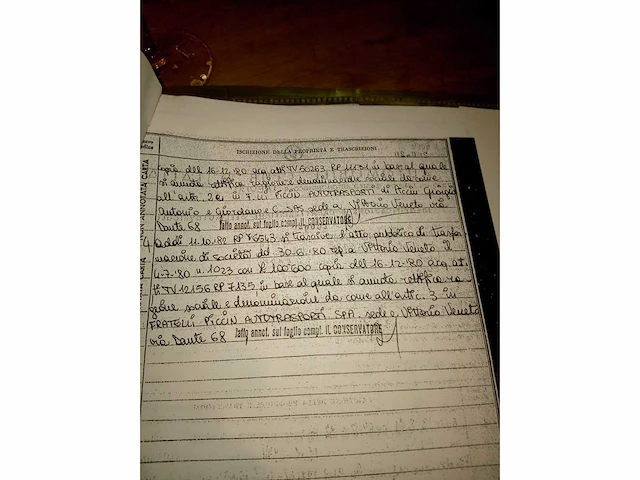 ISCRIZIONE DELLA PROPRIETÀ E TRASCRIZIONI
copia del 16-12-80 acq. TV 50263 RP 11171 in base al quale
si annota rettifica ragione e denominazione sociale da come
all'art. 2 e in 7 in PICCIN AUTOTRASPORTI di Piccin Giorgio
Antonio e Giordano e C. SAS sede a Vittorio Veneto via
Dante 68 fatto annot. sul foglio compl. IL CONSERVATORE
4 Addì 11.10.82 RP 76543 si trascrive l'atto pubblico di trasfor
mazione di società del 30-6-80 reg. a Vittorio Veneto il
4-7-80 n. 1023 con £ 100'600 copia del 16-12-80 acq. at.
TV 12156 RP 7135 in base al quale si annota rettifica ra
gione sociale e denominazione da come all'artic. 3 in
FRATELLI PICCIN AUTOTRASPORTI SPA. sede a Vittorio Veneto
via Dante 68 fatto annot. sul foglio compl. IL CONSERVATORE
ANNOTATA CARTA